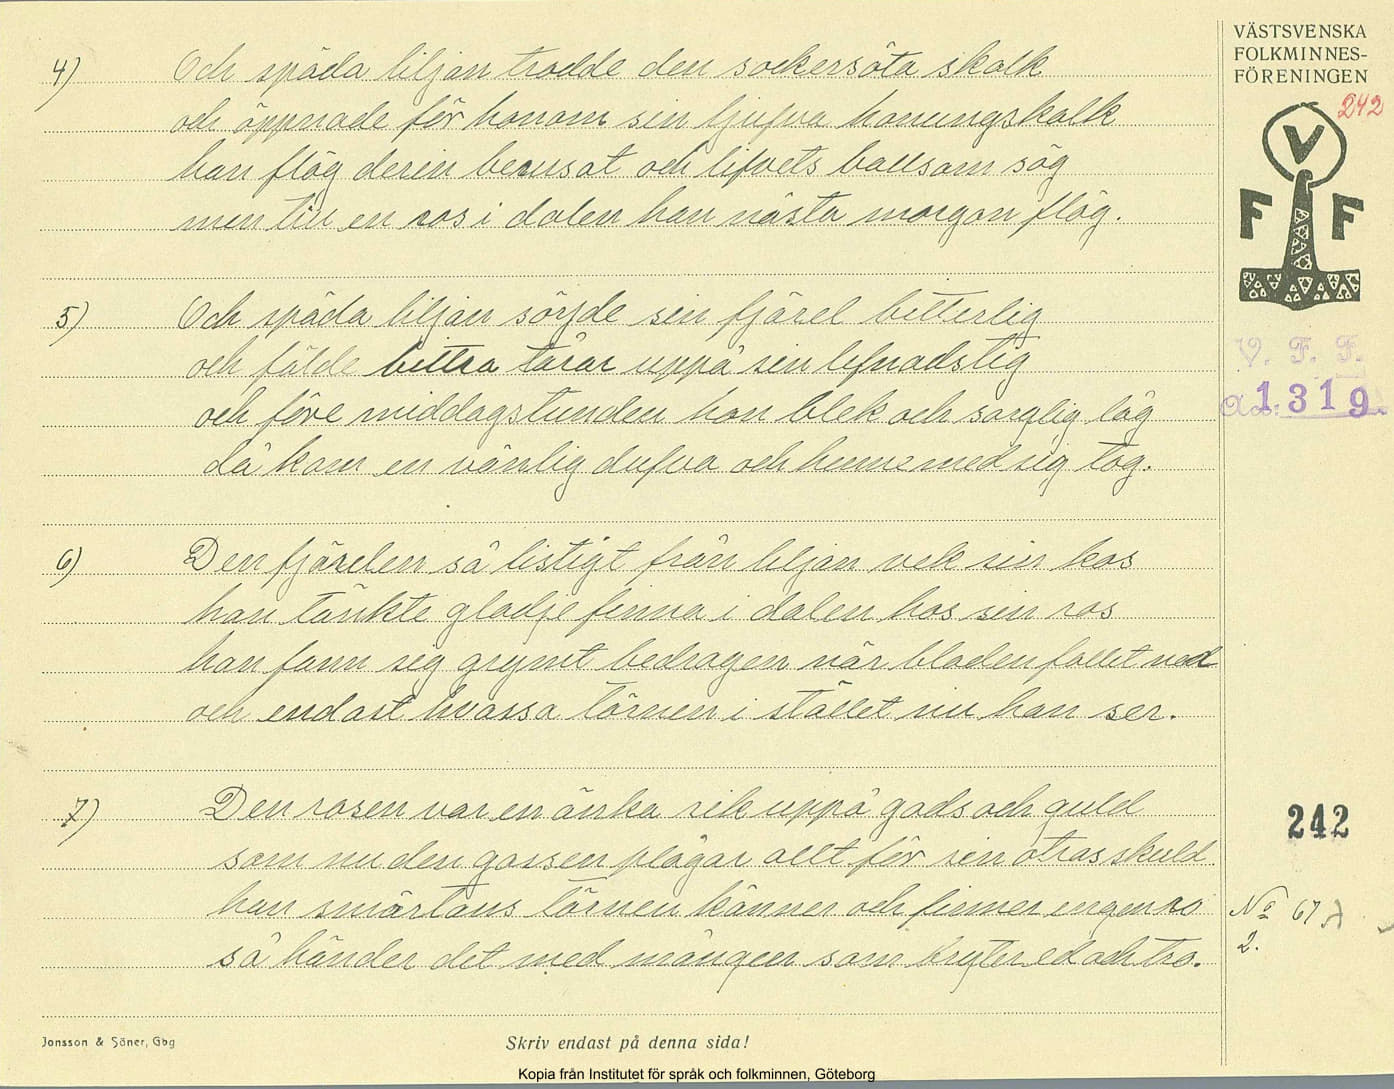 VÄSTSVENSKA
FOLKMINNES-
FÖRENINGEN
242
V
F F
V. F. F.
1319
4) Och späda liljan trodde den sockersöta skalk
och öppnade för honom sin ljufva honungskalk
han flög derin berusat och lifvets ballsam sög
men till en ros i dalen han nästa morgon flög.
5) Och späda liljan sörjde sin fjärel bitterlig
och fälde bittra tårar uppå sin lefnadstig
och före middagstunden hon blek och sorglig låg
då kom en vänlig dufva och henne med sig tog.
6) Den fjärelen så listigt från liljan vek sin kos
han tänkte gladje finna i dalen hos sin ros
han fann seg grymt bedragen när bladen fallit ned
och endast hvassa törnen i stället nu han ser.
7) Den rosen var en änka rik uppå gods och guld
som nu den gossen plågar allt för sin otros skuld
han smärtans törnen känner och finner ingen ro
så händer det med mången som bryter ed och tro.
242
No 67
2.
Jonsson & Söner, Gbg
Skriv endast på denna sida!
Kopia från Institutet för språk och folkminnen, Göteborg